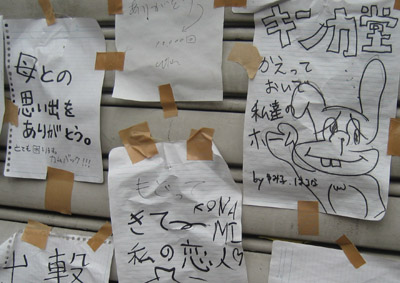 母との
思い出を
ありがとう。
とても困ります。
カムバック!!!
ありがとう
キンカ堂
かえって
おいで
私達の
ホーム
by
もどって
きてー
KONAMI
私の恋人
出撃